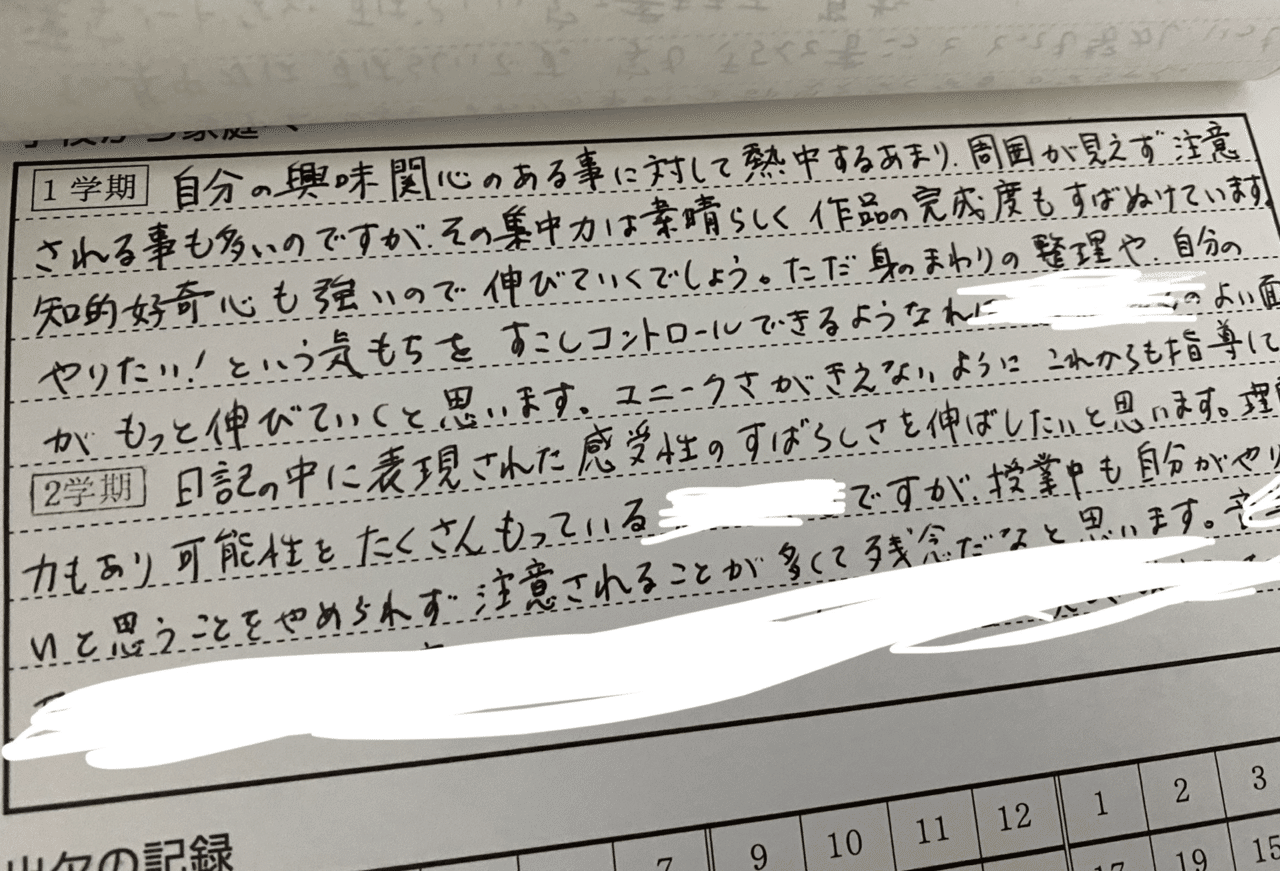 学校から家庭へ
1学期 自分の興味関心のある事に対して熱中するあまり、周囲が見えず注意
される事も多いのですが、その集中力は素晴らしく作品の完成度もすばぬけています。
知的好奇心も強いので伸びていくでしょう。ただ身のまわりの整理や、自分の
やりたい!という気もちをすこしコントロールできるようなれ のよい面
がもっと伸びていくと思います。ユニークさがきえないようにこれからも指導して
2学期 日記の中に表現された感受性のすばらしさを伸ばしたいと思います。理
力もあり可能性をたくさんもっている ですが、授業中も自分がやり
いと思うことをやめられず注意されることが多くて残念だなと思います。
出欠の記録
7 9 10 11 12 1 2 3
17 19 15